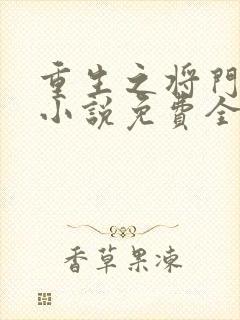 重生之将门
小說免費全
香草果凍